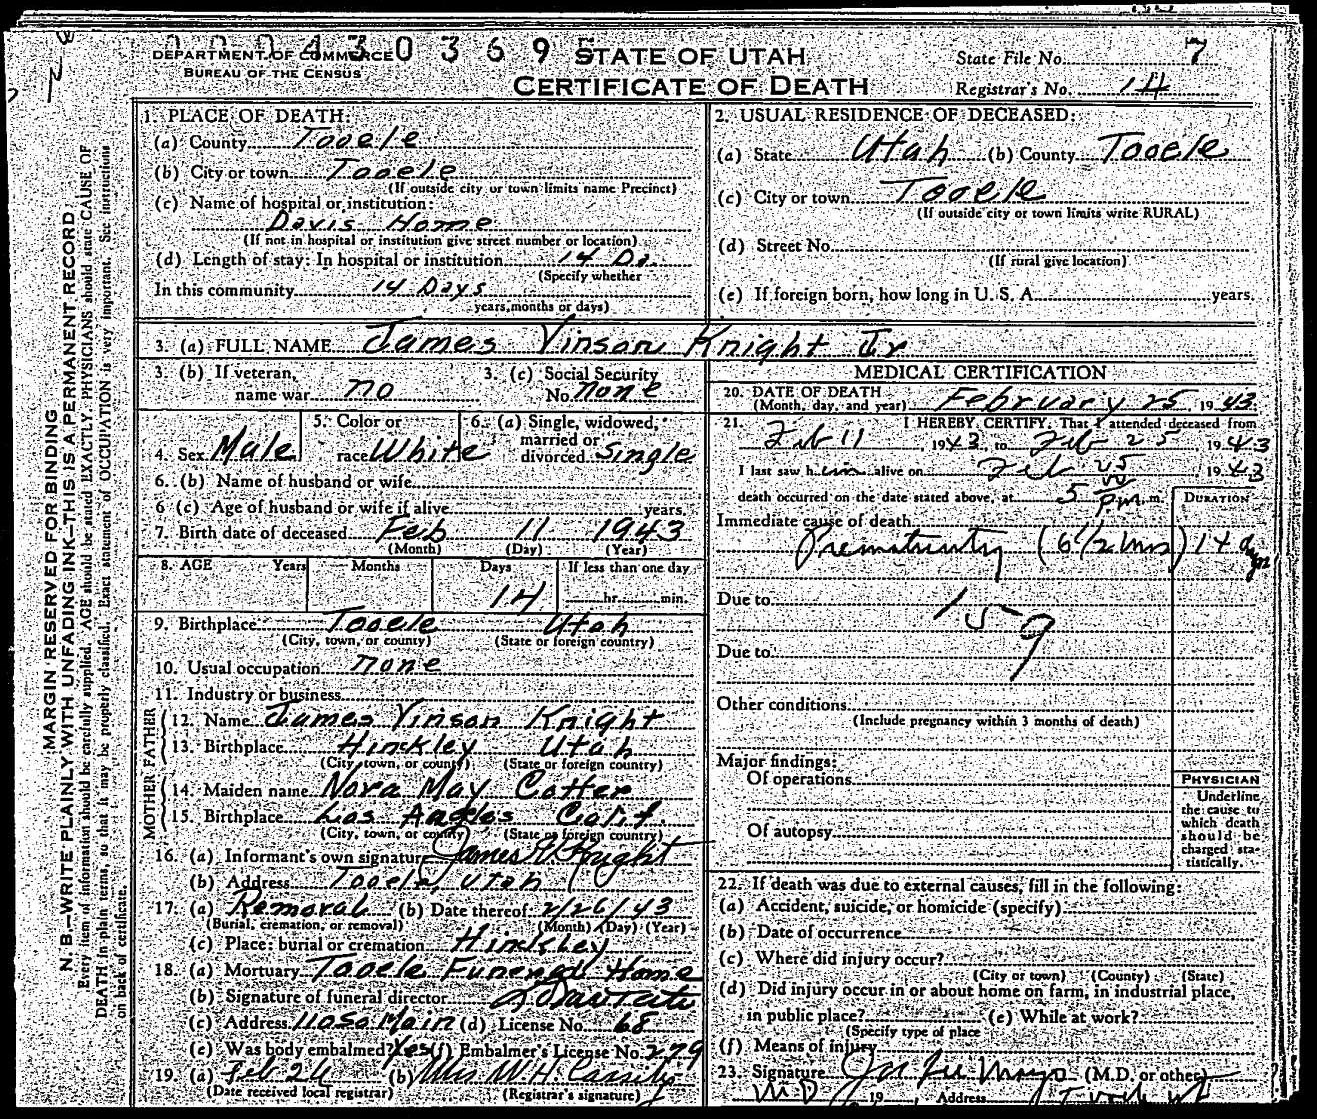 0 0 0 4 3 0 3 6 9
DEPARTMENT OF COMMERCE
BUREAU OF THE CENSUS
STATE OF UTAH
CERTIFICATE OF DEATH
State File No. 7
Registrar's No. 14
MARGIN RESERVED FOR BINDING
N. B.—WRITE PLAINLY, WITH UNFADING INK—THIS IS A PERMANENT RECORD
Every item of information should be carefully supplied. AGE should be stated EXACTLY. PHYSICIANS should state CAUSE OF
DEATH in plain terms, so that it may be properly classified. Exact statement of OCCUPATION is very important. See instructions
on back of certificate.
1. PLACE OF DEATH:
(a) County Tooele
(b) City or town Tooele
(If outside city or town limits name Precinct)
(c) Name of hospital or institution:
Davis Home
(If not in hospital or institution give street number or location)
(d) Length of stay: In hospital or institution 14 Da.
(Specify whether
In this community 14 Days
years, months or days)
2. USUAL RESIDENCE OF DECEASED:
(a) State Utah (b) County Tooele
(c) City or town Tooele
(If outside city or town limits write RURAL)
(d) Street No.
(If rural give location)
(e) If foreign born, how long in U. S. A. years.
3. (a) FULL NAME James Vinson Knight Jr
3. (b) If veteran, name war no
3. (c) Social Security No. none
4. Sex Male
5. Color or race White
6. (a) Single, widowed, married or divorced Single
6. (b) Name of husband or wife
6 (c) Age of husband or wife if alive years.
7. Birth date of deceased Feb 11 1943
(Month) (Day) (Year)
8. AGE Years Months Days If less than one day
14 hr. min.
9. Birthplace Tooele Utah
(City, town, or county) (State or foreign country)
10. Usual occupation none
11. Industry or business
FATHER
12. Name James Vinson Knight
13. Birthplace Hinkley Utah
(City, town, or county) (State or foreign country)
MOTHER
14. Maiden name Nora May Cotter
15. Birthplace Los Angles Calif.
(City, town, or county) (State or foreign country)
16. (a) Informant's own signature James V Knight
(b) Address Tooele, Utah
17. (a) Removal (b) Date thereof 2/26/43
(Burial, cremation, or removal) (Month) (Day) (Year)
(c) Place: burial or cremation Hinkley
18. (a) Mortuary Tooele Funeral Home
(b) Signature of funeral director
(c) Address 110 So Main (d) License No. 68
(e) Was body embalmed? Yes (f) Embalmer's License No. 279
19. (a) Feb 26 (b) Mrs W.H. Cassity
(Date received local registrar) (Registrar's signature)
MEDICAL CERTIFICATION
20. DATE OF DEATH
(Month, day, and year) February 25 1943
21. I HEREBY CERTIFY, That I attended deceased from
Feb 11, 1943 to Feb 25, 1943
I last saw him alive on Feb 25, 1943
death occurred on the date stated above, at 5 P.m. m.
DURATION
Immediate cause of death
Prematurity (6 1/2 mos) 14 days
Due to
159
Due to
Other conditions
(Include pregnancy within 3 months of death)
Major findings:
Of operations
Of autopsy
PHYSICIAN
Underline
the cause to
which death
should be
charged sta-
tistically.
22. If death was due to external causes, fill in the following:
(a) Accident, suicide, or homicide (specify)
(b) Date of occurrence
(c) Where did injury occur?
(City or town) (County) (State)
(d) Did injury occur in or about home on farm, in industrial place,
in public place? (e) While at work?
(Specify type of place
(f) Means of injury
23. Signature (M.D. or other)
M D 19 , Address